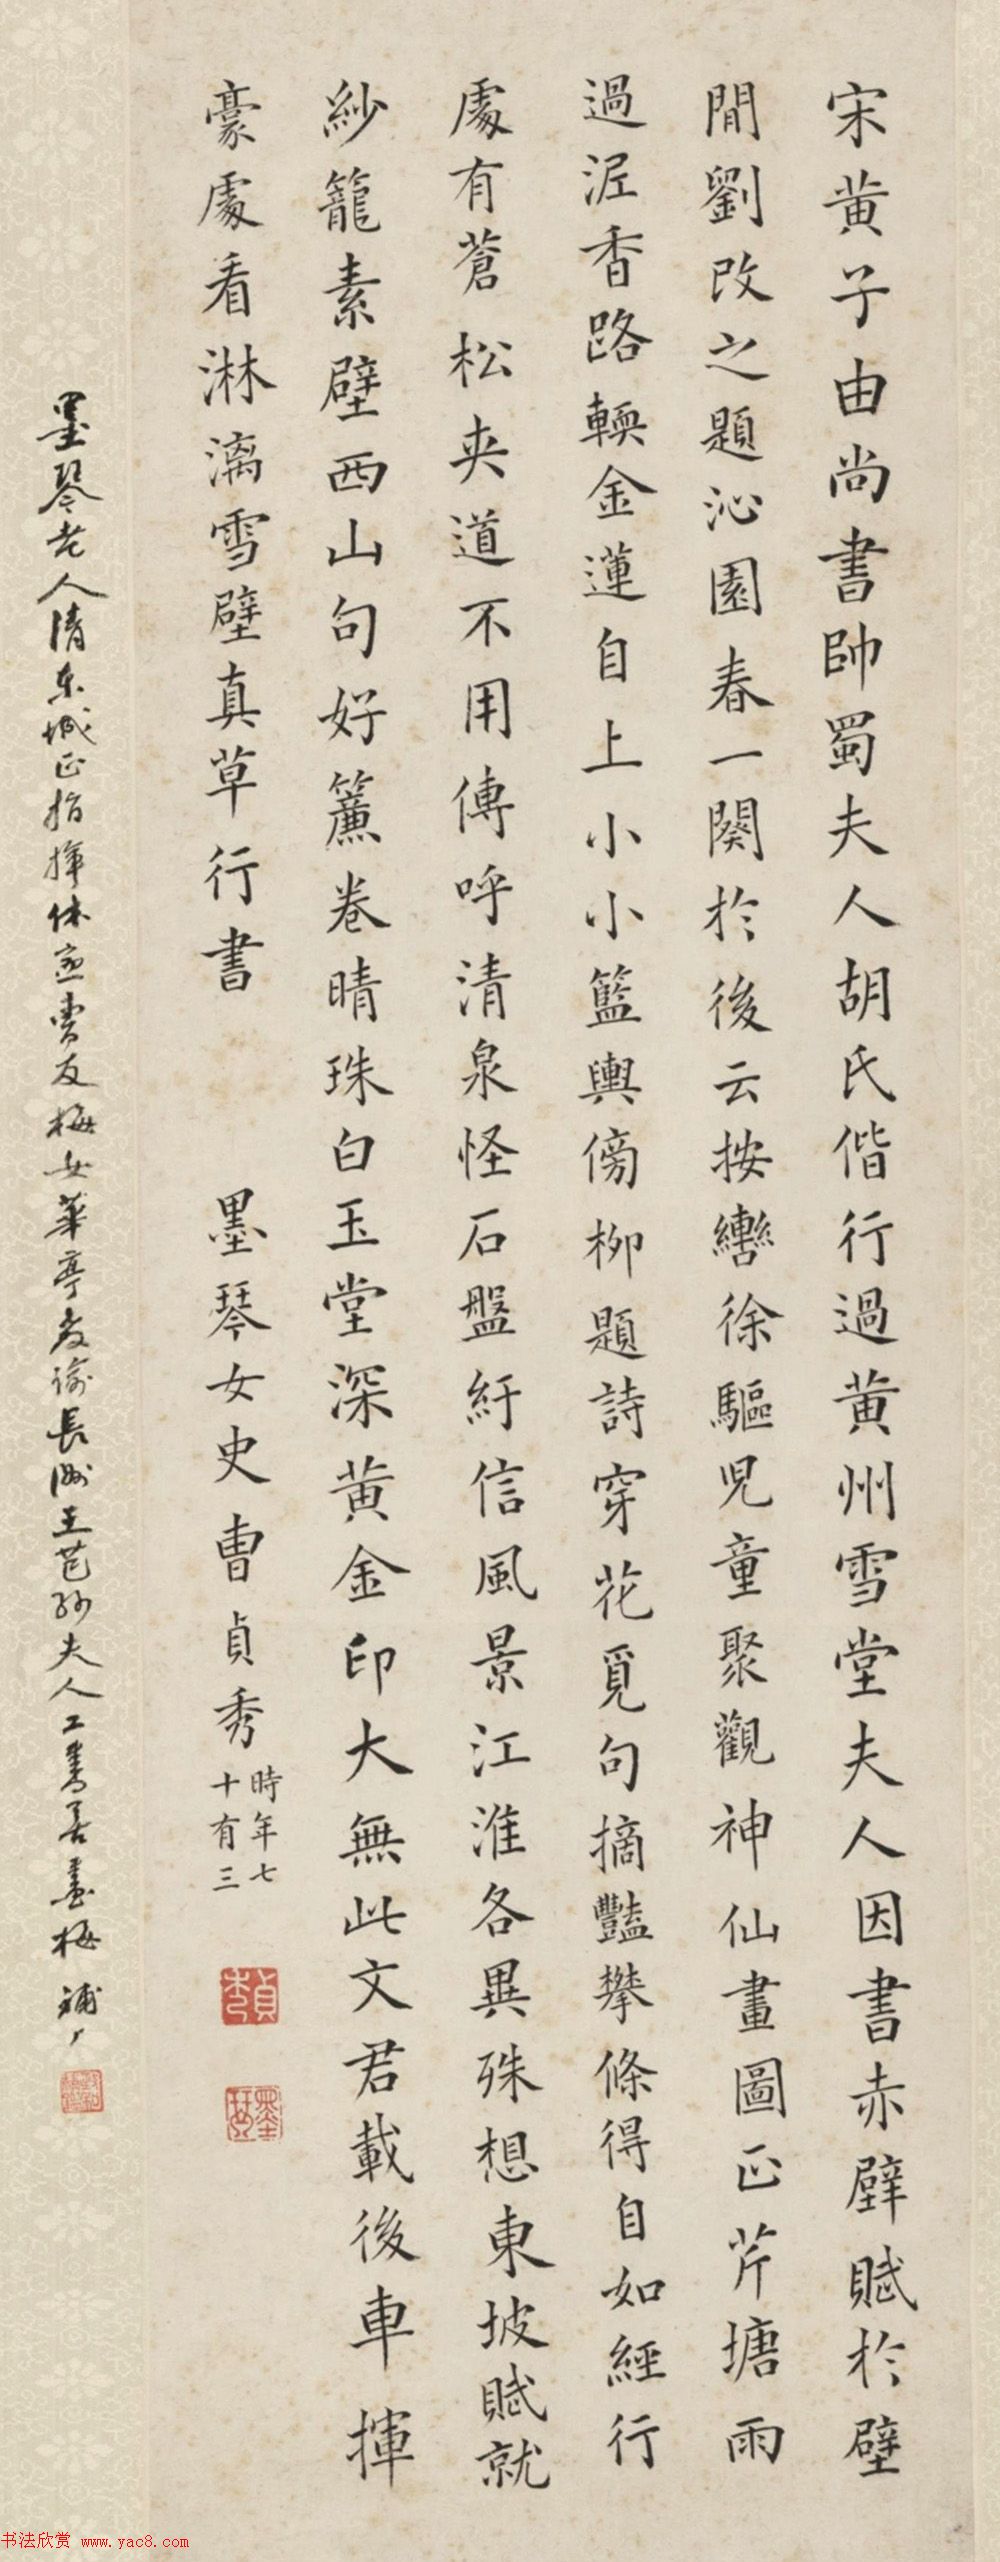 宋黄子由尚書帥蜀夫人胡氏偕行過黄州雪堂夫人因書赤壁賦於壁
間劉改之題沁園春一闋於後云按轡徐驅兒童聚觀神仙畫圖正芹塘雨
過泥香路輭金蓮自上小小籃輿傍柳題詩穿花覓句摘豔攀條得自如經行
處有蒼松夾道不用傳呼清泉怪石盤紆信風景江淮各異殊想東坡賦就
紗籠素壁西山句好簾卷晴珠白玉堂深黄金印大無此文君載後車揮
豪處看淋漓雪壁真草行書
墨琴女史曹貞秀
時年七
十有三
貞秀
墨琴
墨琴老人清東城正指揮休寧曹友梅女華亭教諭長洲王芑孫夫人工書善畫梅
书法欣赏 www.yac8.com